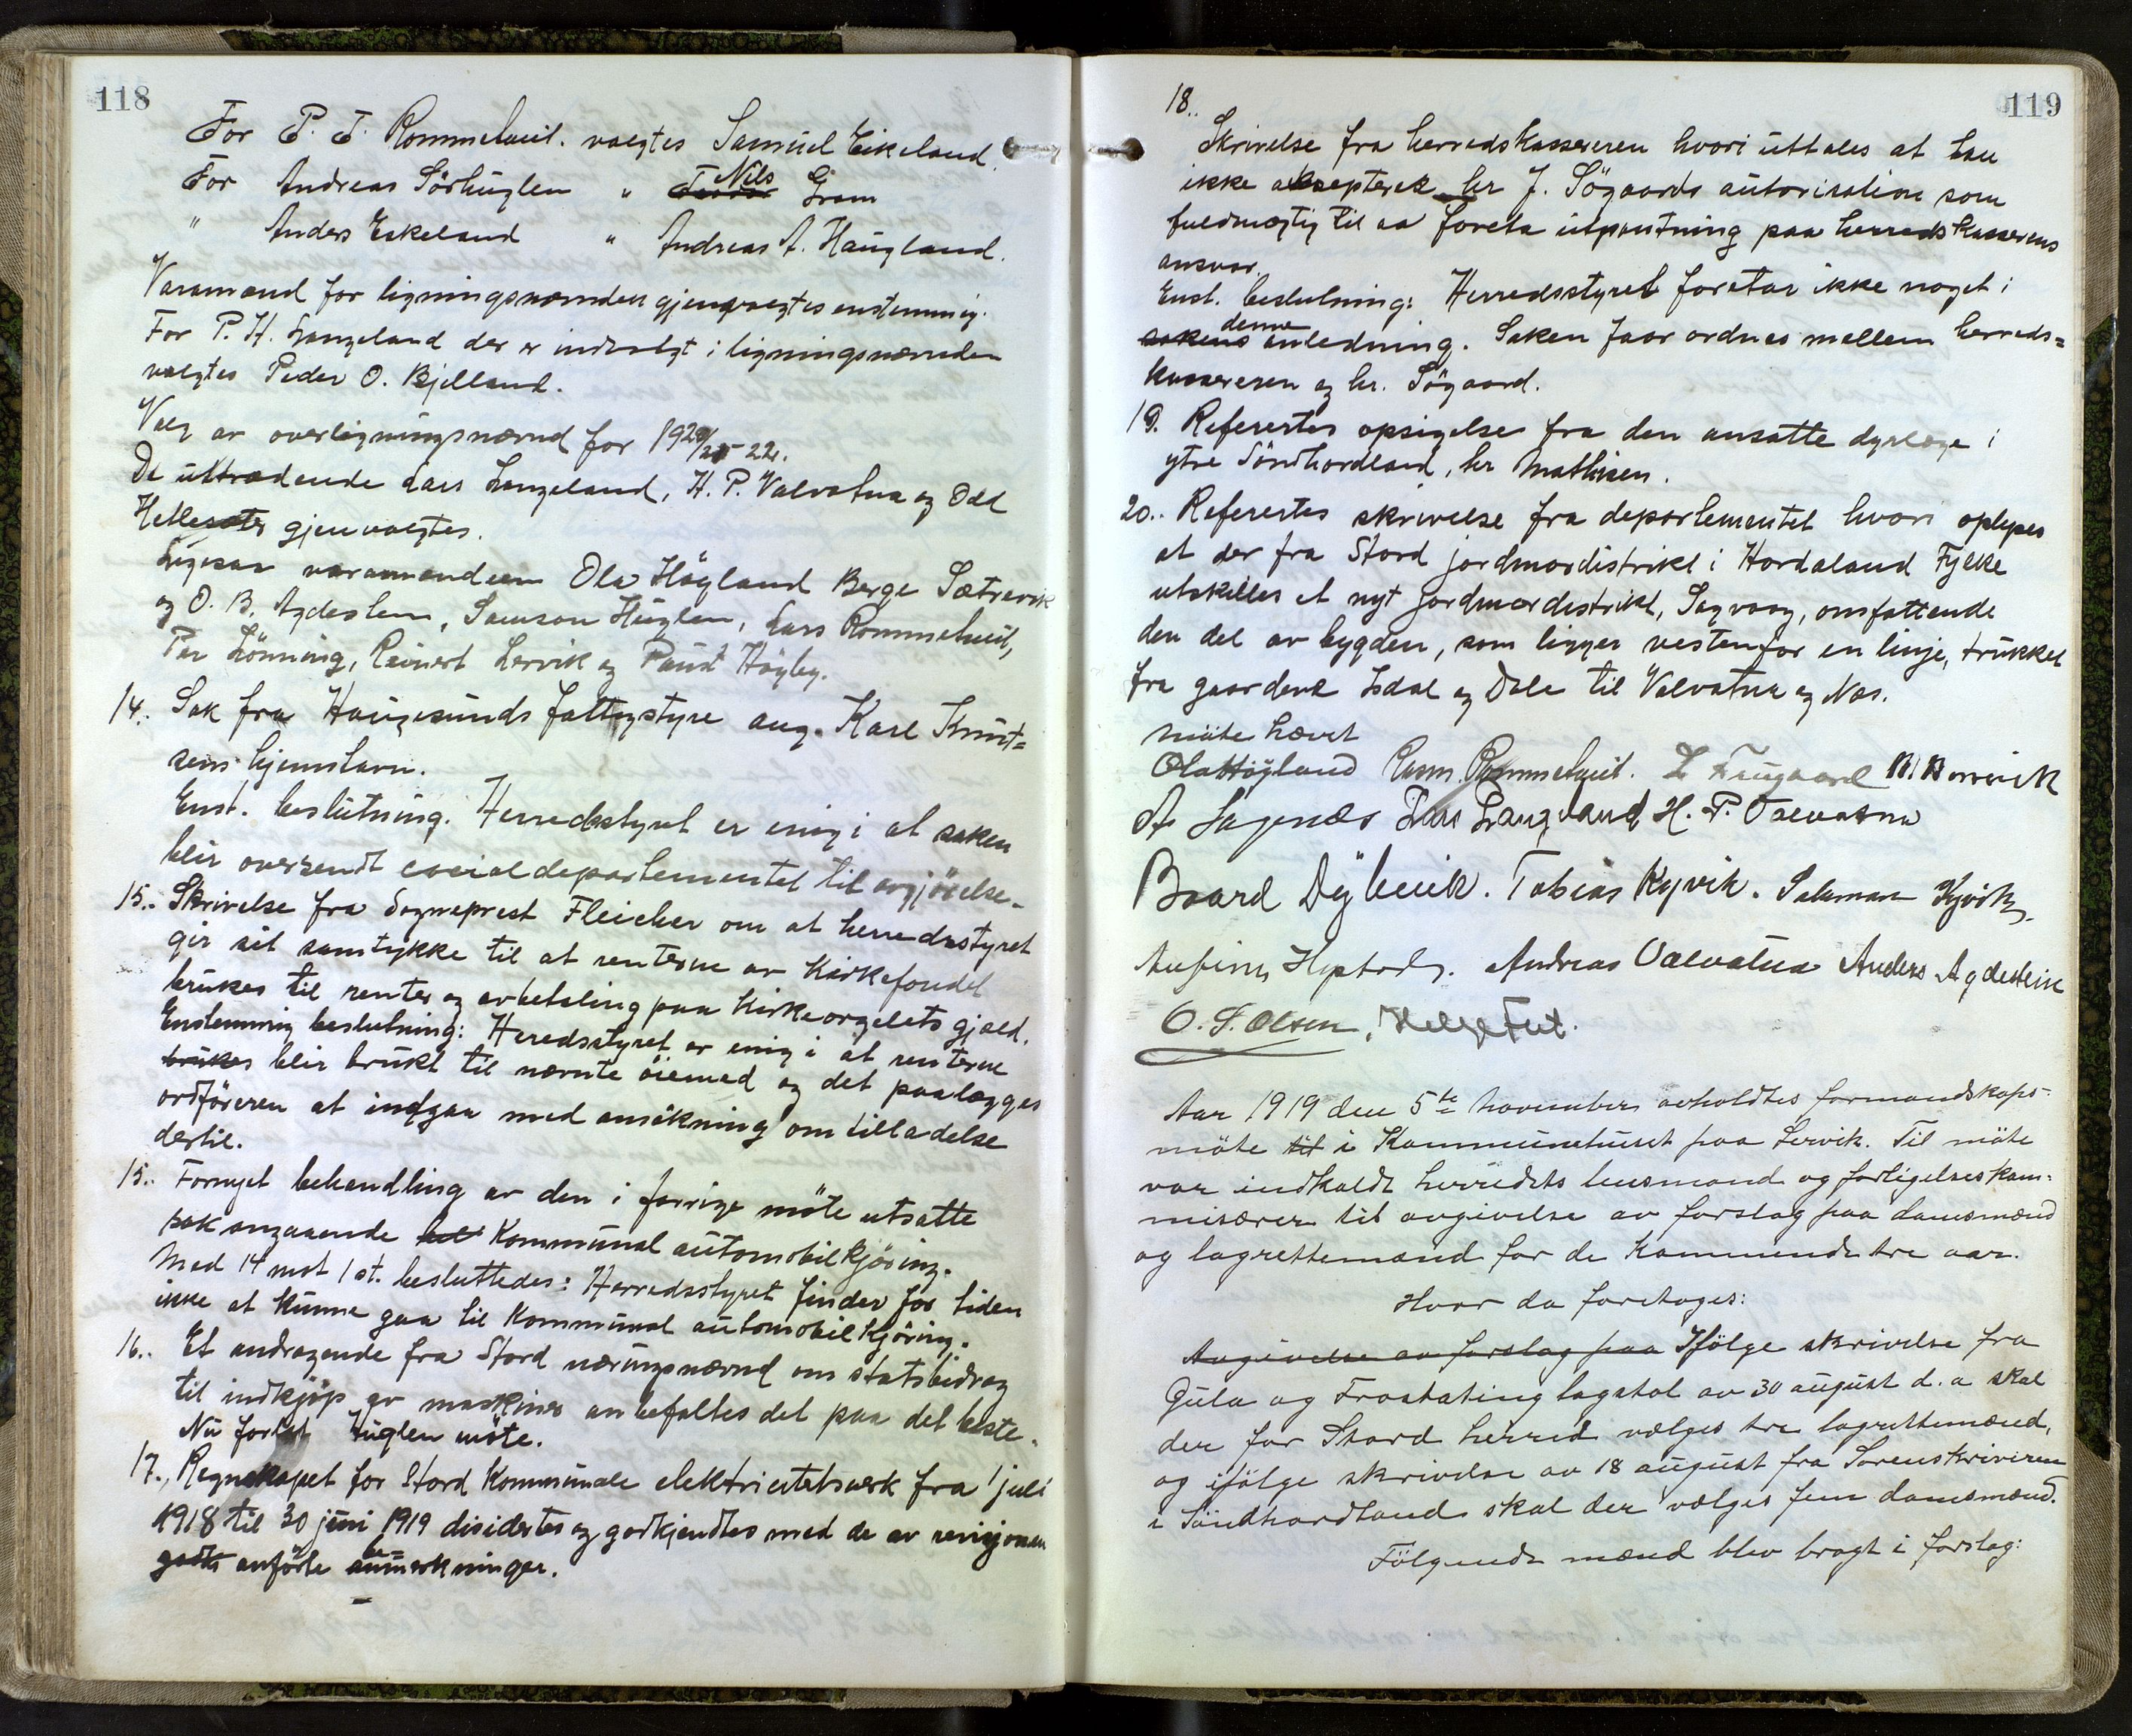 118
For P. T. Rommetveit. valgtes Samuel Eikeland.
For Andreas Sörhuglen " Nils Gram
" Anders Eskeland " Andreas A. Haugland.
Varamænd for ligningsnævnden gjenvalgtes enstemmig.
For P. H. Langeland der er indvalgt i ligningsnævnden
valgtes Peder O. Bjelland.
Valg av overligningsnævnd for 1920/21-22.
De uttrædende Lars Langeland, H. P. Valvatna og Odd
Hellesæter gjenvalgtes.
Ligesaa varamændene Ola Högland Berge Sætrevik
og O. B. Agdestein, Samson Huglen, Lars Rommetveit,
Per Lönning, Reinert Lervik og Paust Högby.
14. Sak fra Haugesunds fattigstyre ang. Karl Knut=
sens hjemstavn.
Enst. beslutning. Herredsstyret er enig i at saken
blir oversendt socialdepartementet til avgjörelse.
15. Skrivelse fra Sogneprest Fleicher om at herredsstyret
gir sit samtykke til at renterne av Kirkefondet
brukes til renter og avbetaling paa Kirkeorgelets gjæld.
Enstemmig beslutning: Heredsstyret er enig i at renterne
brukes blir brukt til nævnte öiemed og det paalægges
ordföreren at indgaa med ansökning om tilladelse
dertil.
15. Fornyet behandling av den i forrige möte utsatte
sak angaaende Kommunal automobilkjöring.
Med 14 mot 1 st. besluttedes: Herredsstyret finder for tiden
ikke at kunne gaa til Kommunal automobilkjöring.
16. Et andragende fra Stord næringsnævnd om statsbidrag
til indkjöp av maskiner anbefaltes det paa det beste.
Nu forlot Huglen möte.
17. Regnskapet for Stord Kommunale elektricitetsverk fra 1 juli
1918 til 30 juni 1919 disidertes og godkjendtes med de av revisjonen
godk anförte bemerkninger.
119
18.
Skrivelse fra herredskassereren hvori uttales at han
ikke aksepterer hr J. Sögaards autorisation som
fuldmægtig til aa foreta utpantning paa herredskasserens
ansvar.
Enst. beslutning: Herredsstyret foretar ikke noget i
sakens denne anledning. Saken faar ordnes mellem herreds=
kassereren og hr. Sögaard.
19. Referertes opsigelse fra den ansatte dyrlæge i
ytre Söndhordland, hr Mathisen.
20. Referertes skrivelse fra departementet hvori oplyses
at der fra Stord jordmordistrikt i Hordaland Fylke
utskilles et nyt jordmordistrikt, Sagvaag, omfattende
den del av bygden, som ligger vestenfor en linje, trukket
fra gaardene Isdal og Dale til Valvatna og Næs.
Möte hævet
Ola Högland Rasm. Rommetveit.
A Sagenæs Lars Langeland H. P. Valvatna
Baard Dybevik. Tobias Kyvik. Salamon Kyvik.
Andreas Valvatna Anders Agdestein
O. T. Olsen, Helge Fut.
Aar 1919 den 5te november avholdtes formandskaps-
möte til i Kommunehuset paa Lervik. Til möte
var indkaldt herredets lensmand og forligelseskom-
misærer til avgivelse av forslag paa domsmænd
og lagrettemænd for de kommende tre aar.
Hvor da foretoges:
Avgivelse av forslag paa Ifölge skrivelse fra
Gula og Frostating lagstol av 30 august d. a skal
der for Stord herred vælges tre lagrettemænd,
og ifölge skrivelse av 18 august fra Sorenskriveren
i Söndhordland skal der vælges fem domsmænd.
Fölgende mænd blev bragt i forslag: